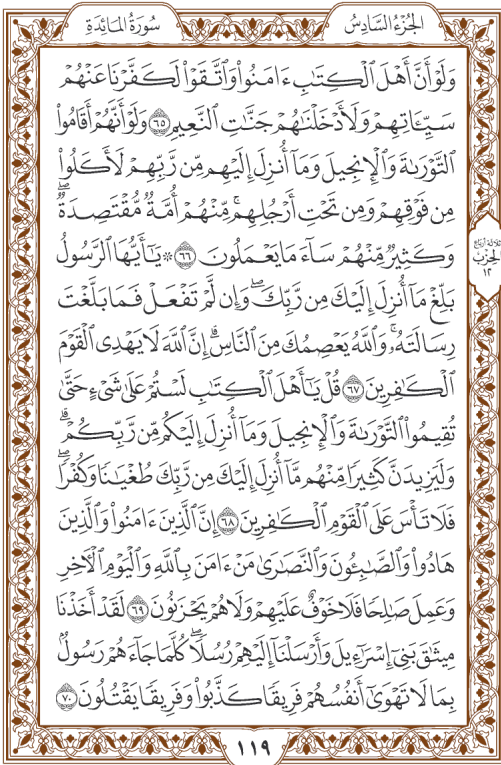 سُورَةُ المَائِدَةِ
الجُزْءُ السَّادِسُ
وَلَوْ أَنَّ أَهْلَ ٱلْكِتَٰبِ ءَامَنُوا۟ وَٱتَّقَوْا۟ لَكَفَّرْنَا عَنْهُمْ
سَيِّـَٔاتِهِمْ وَلَأَدْخَلْنَٰهُمْ جَنَّٰتِ ٱلنَّعِيمِ ٦٥ وَلَوْ أَنَّهُمْ أَقَامُوا۟
ٱلتَّوْرَىٰةَ وَٱلْإِنجِيلَ وَمَآ أُنزِلَ إِلَيْهِم مِّن رَّبِّهِمْ لَأَكَلُوا۟
مِن فَوْقِهِمْ وَمِن تَحْتِ أَرْجُلِهِم ۚ مِّنْهُمْ أُمَّةٌ مُّقْتَصِدَةٌ ۖ
وَكَثِيرٌ مِّنْهُمْ سَآءَ مَا يَعْمَلُونَ ٦٦ ۞ يَٰٓأَيُّهَا ٱلرَّسُولُ
بَلِّغْ مَآ أُنزِلَ إِلَيْكَ مِن رَّبِّكَ ۖ وَإِن لَّمْ تَفْعَلْ فَمَا بَلَّغْتَ
رِسَالَتَهُۥ ۚ وَٱللَّهُ يَعْصِمُكَ مِنَ ٱلنَّاسِ ۗ إِنَّ ٱللَّهَ لَا يَهْدِى ٱلْقَوْمَ
ٱلْكَٰفِرِينَ ٦٧ قُلْ يَٰٓأَهْلَ ٱلْكِتَٰبِ لَسْتُمْ عَلَىٰ شَىْءٍ حَتَّىٰ
تُقِيمُوا۟ ٱلتَّوْرَىٰةَ وَٱلْإِنجِيلَ وَمَآ أُنزِلَ إِلَيْكُم مِّن رَّبِّكُمْ ۗ
وَلَيَزِيدَنَّ كَثِيرًا مِّنْهُم مَّآ أُنزِلَ إِلَيْكَ مِن رَّبِّكَ طُغْيَٰنًا وَكُفْرًا ۖ
فَلَا تَأْسَ عَلَى ٱلْقَوْمِ ٱلْكَٰفِرِينَ ٦٨ إِنَّ ٱلَّذِينَ ءَامَنُوا۟ وَٱلَّذِينَ
هَادُوا۟ وَٱلصَّٰبِـُٔونَ وَٱلنَّصَٰرَىٰ مَنْ ءَامَنَ بِٱللَّهِ وَٱلْيَوْمِ ٱلْءَاخِرِ
وَعَمِلَ صَٰلِحًا فَلَا خَوْفٌ عَلَيْهِمْ وَلَا هُمْ يَحْزَنُونَ ٦٩ لَقَدْ أَخَذْنَا
مِيثَٰقَ بَنِىٓ إِسْرَٰٓءِيلَ وَأَرْسَلْنَآ إِلَيْهِمْ رُسُلًا ۖ كُلَّمَا جَآءَهُمْ رَسُولٌۢ
بِمَا لَا تَهْوَىٰٓ أَنفُسُهُمْ فَرِيقًا كَذَّبُوا۟ وَفَرِيقًا يَقْتُلُونَ ٧٠
ثلاثة أرباع
الحزب
١٢
١١٩